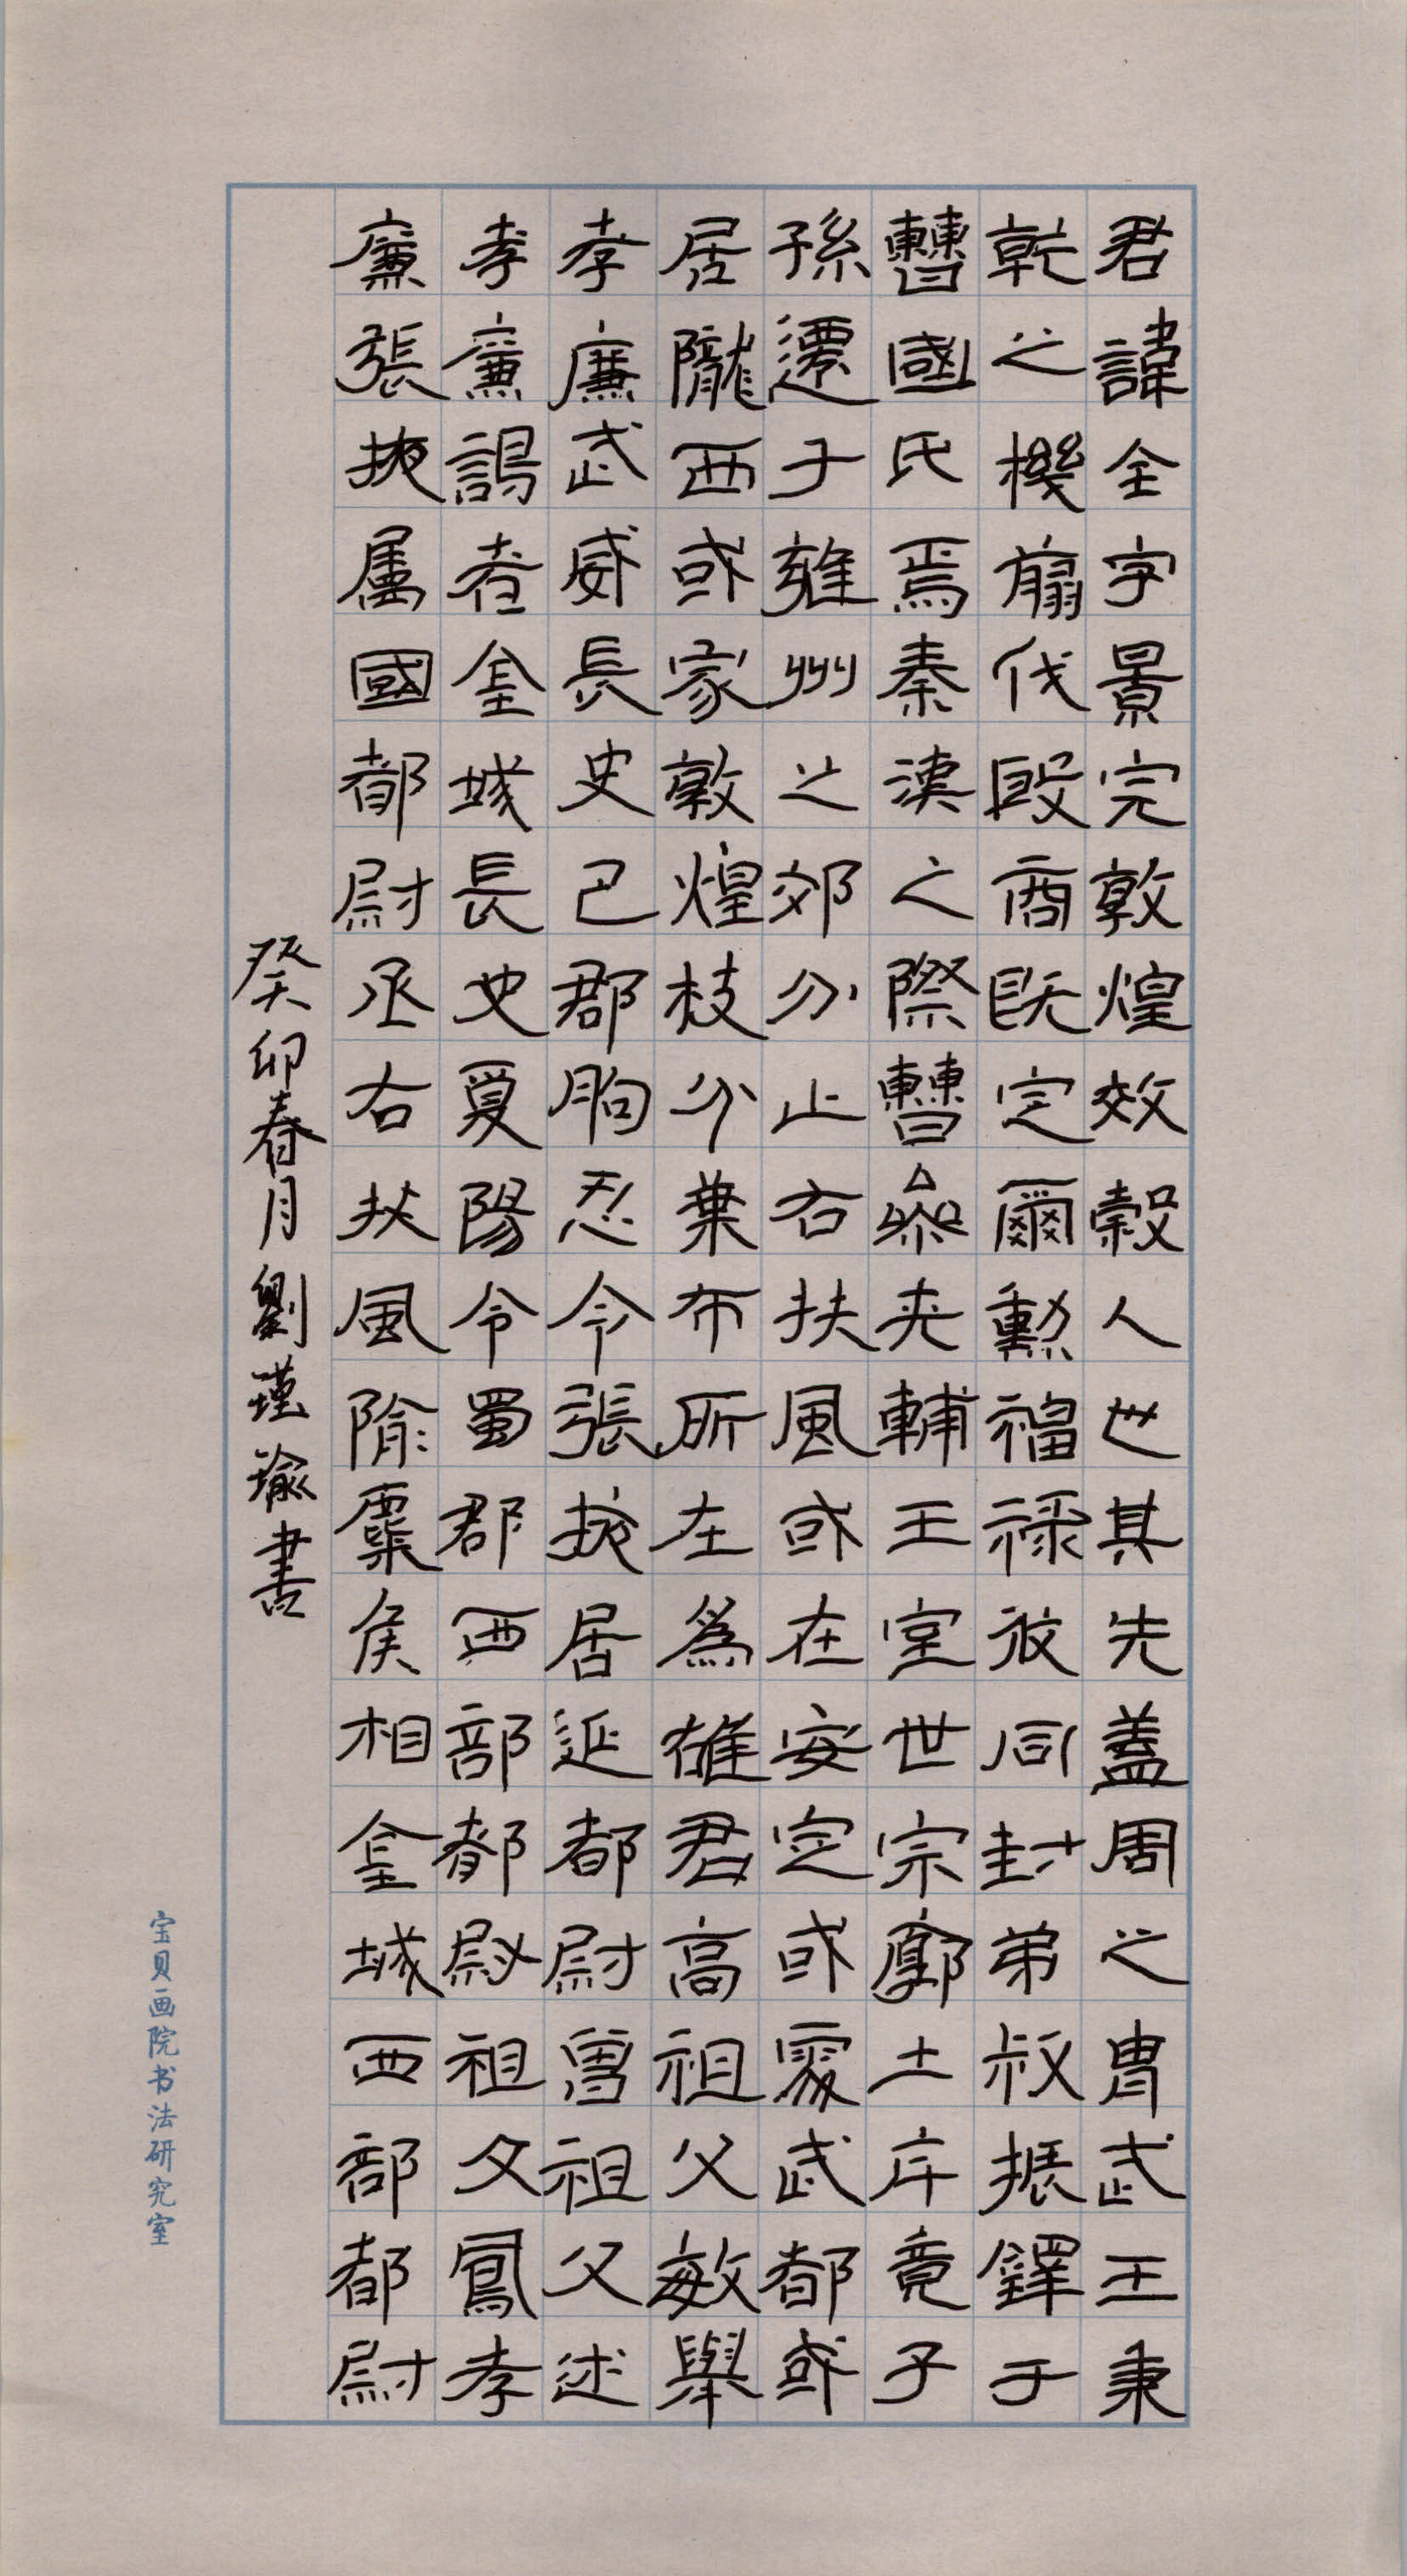 君諱全字景完敦煌效穀人世其先蓋周之胄武王秉
乾之機翦伐殷商既定爾勳福祿攸同封弟叔振鐸于
曹國氏焉秦漢之際曹參夾輔王室世宗廓土斥竟子
孫遷于雍州之郊分止右扶風或在安定或處武都或
居隴西或家敦煌枝分葉布所在為雄君高祖父敏舉
孝廉武威長史巴郡朐忍令張掖居延都尉曾祖父述
孝廉謁者金城長史夏陽令蜀郡西部都尉祖父鳳孝
廉張掖屬國都尉丞右扶風隃麋侯相金城西部都尉
癸卯春月劉瑾瑜書
宝贝画院书法研究室